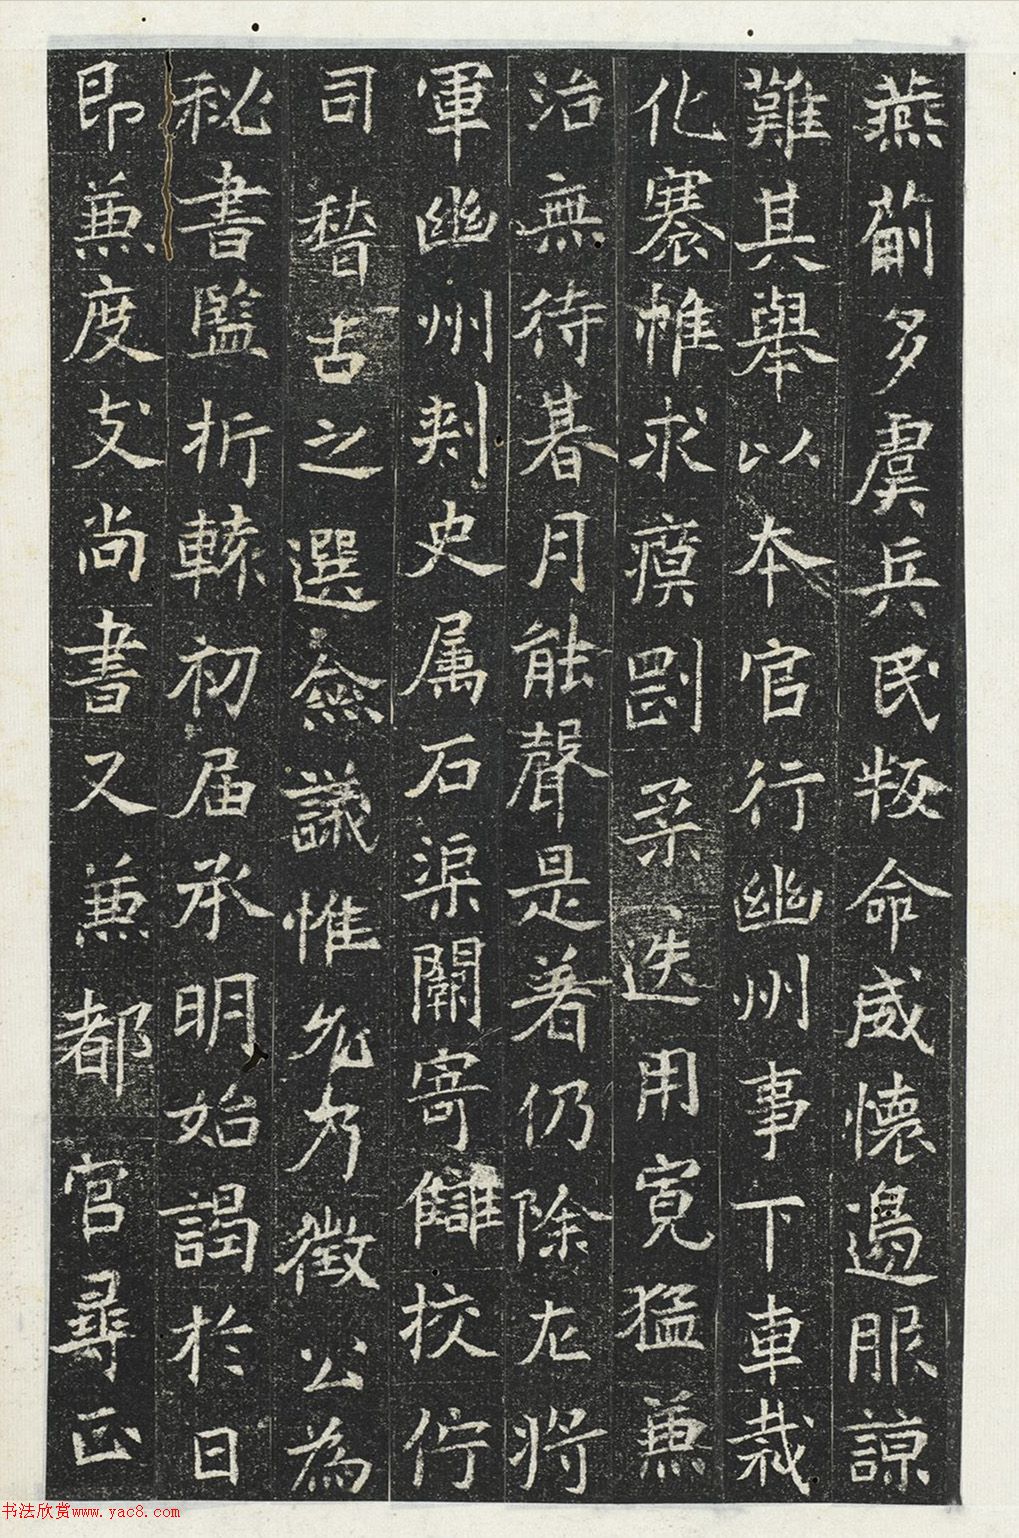 燕薊多虞兵民叛命威懷邊服諒
難其舉以本官行幽州事下車裁
化褰帷求瘼罰柔迭用寛猛兼
治無待朞月能聲是著仍除左將
軍幽州刺史属石渠闕寄讎挍佇
司稽古之選僉議惟允乃徵公為
秘書監折轅初届承明始謁於日
即兼度支尚書又兼都官尋正
书法欣赏www.yac8.com